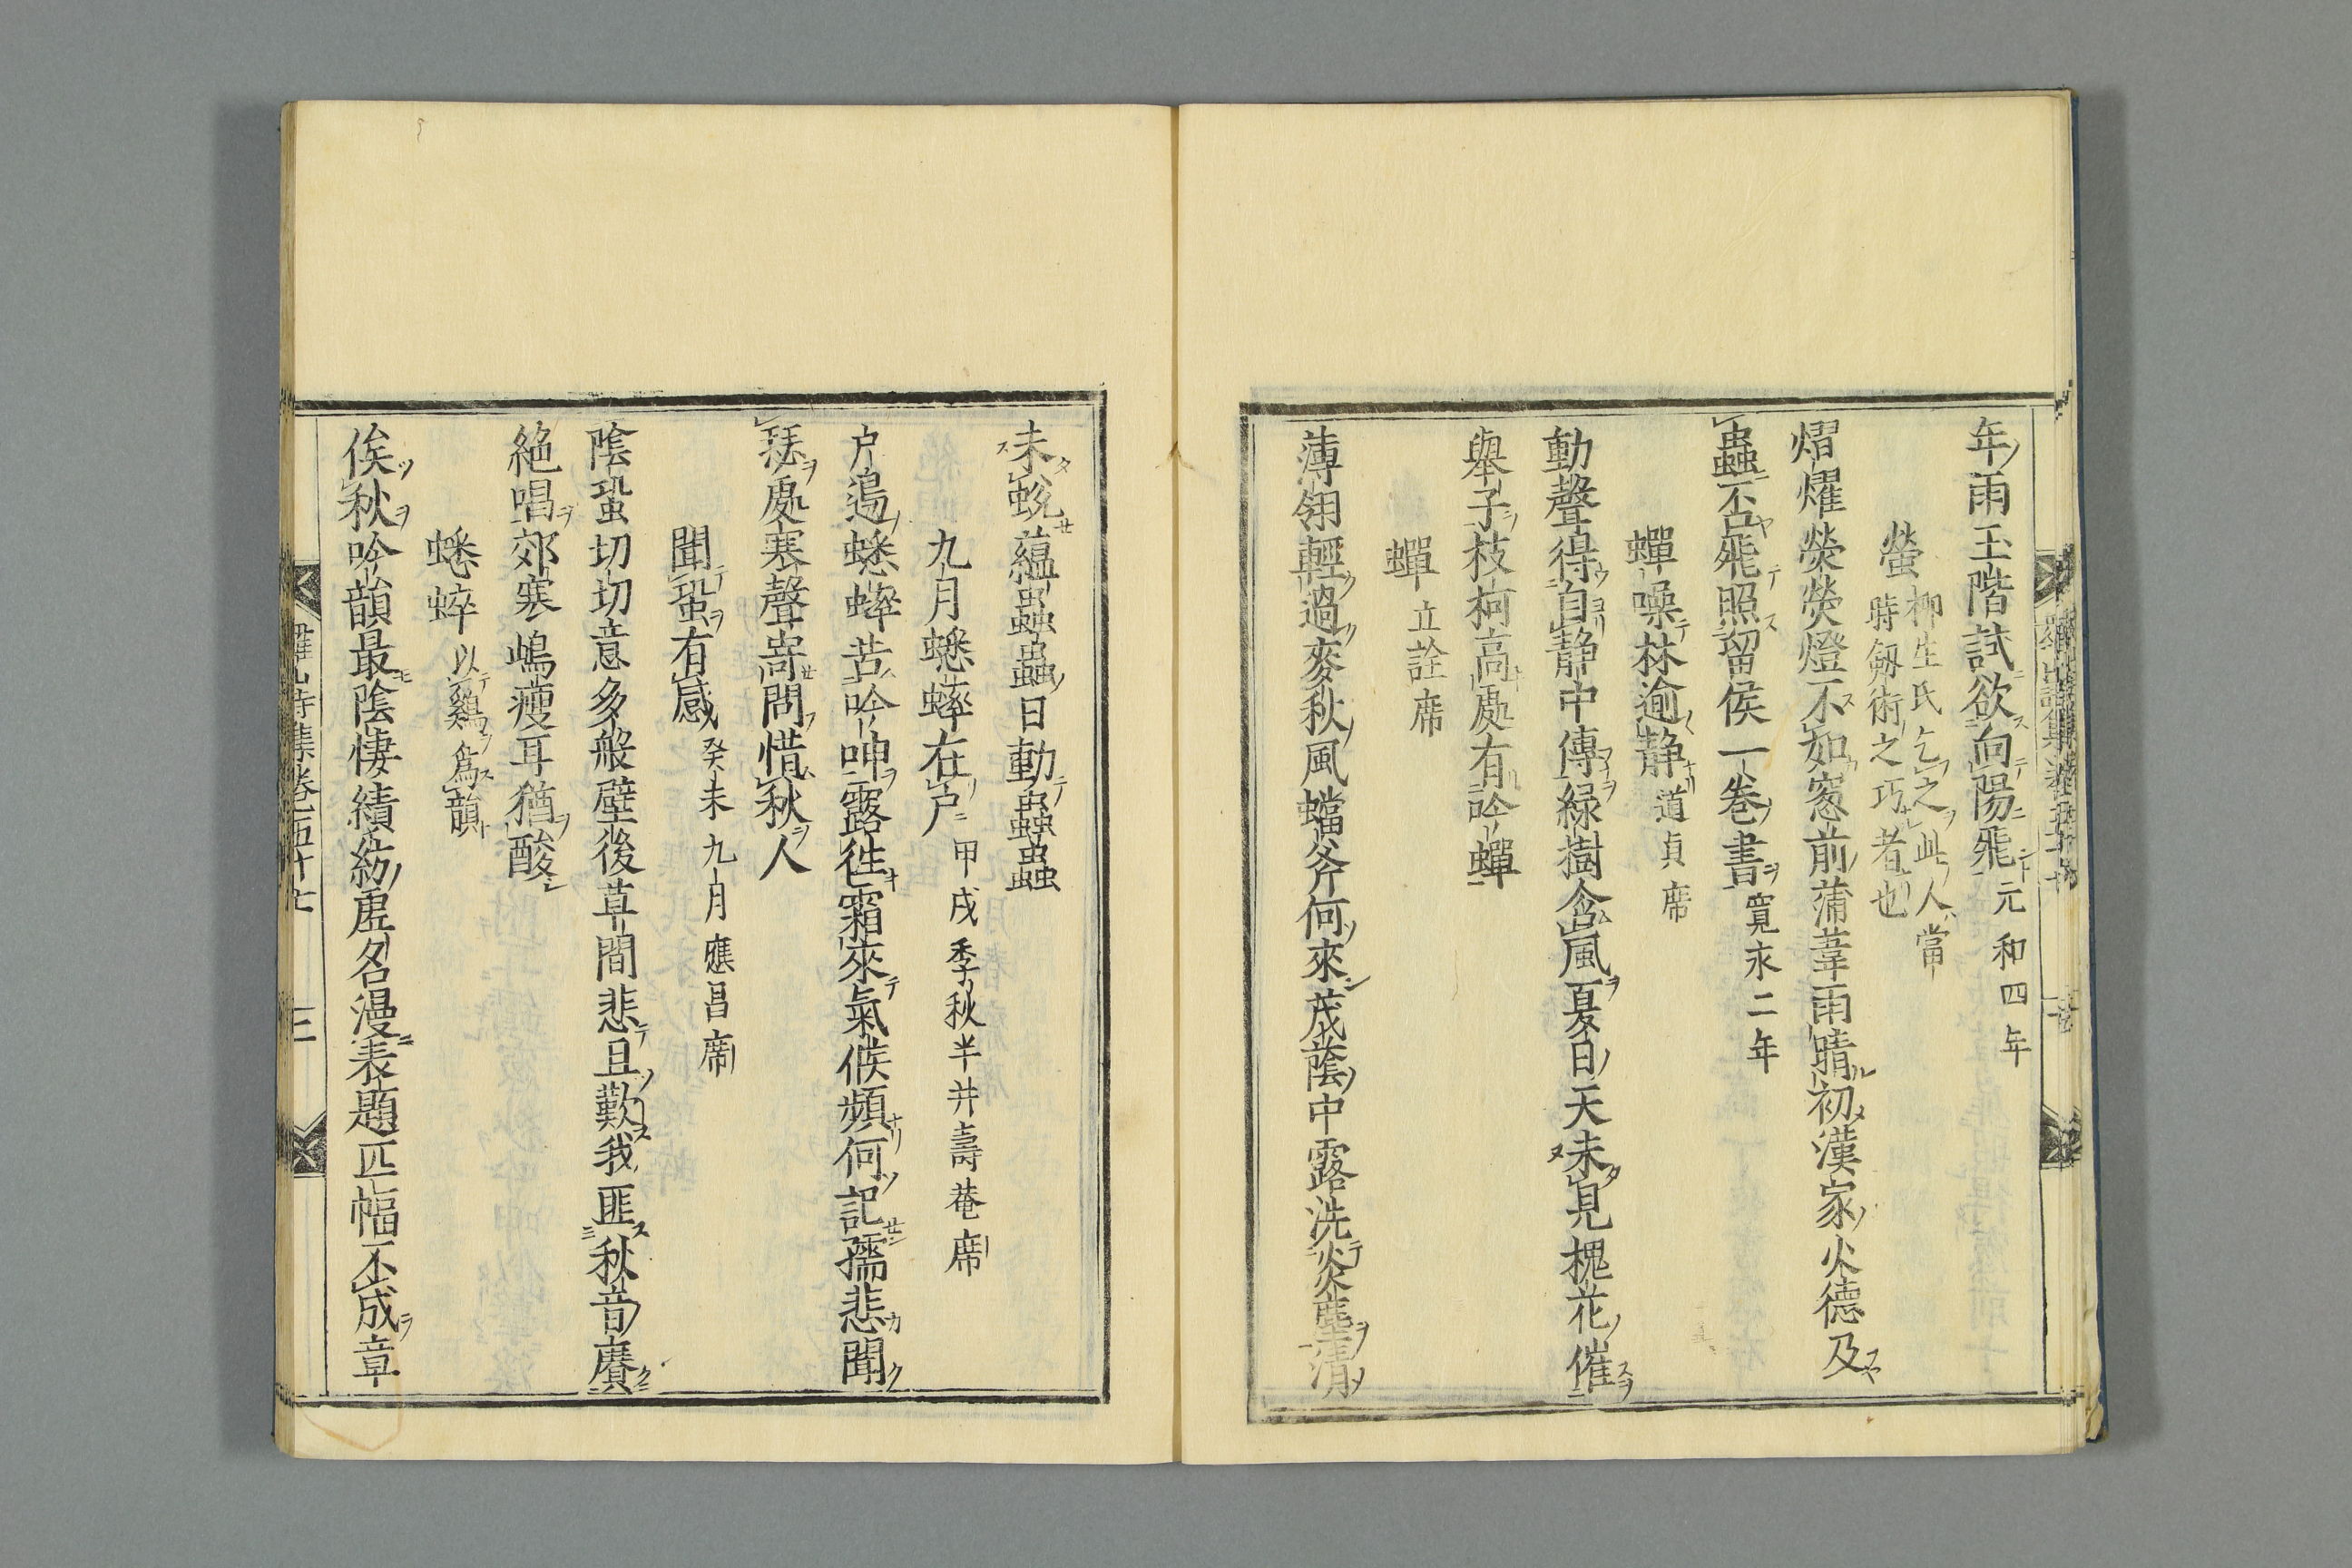 年雨玉階試欲向陽飛元和四年
螢柳生氏乞之此人當
時劔術之巧者也
熠燿熒熒燈不如窓前蒲葦雨晴初漢家火德及
蟲否飛照留侯一卷書寛永二年
蟬噪林逾静道貞席
動聲得自静中傳綠樹含風夏日天未見槐花催
舉子枝柯高處有吟蟬
蟬立詮席
薄翎輕過麥秋風蟷斧何來茂蔭中露洗炎塵清
未蛻蘊蟲蟲日動蟲蟲
九月蟋蟀在戸甲戌季秋半井壽菴席
戸邉蟋蟀苦吟呻露徃霜來氣候頻何記孺悲聞
瑟處寒聲寄問惜秋人
聞蛩有感癸未九月應昌席
陰蛩切切意多般壁後草間悲且歎我匪秋音賡
絶唱郊寒嶋瘦耳猶酸
蟋蟀以鷄爲韻
俟秋吟韻最陰悽績紡虚名漫表題匹幅不成章
羅山詩集卷五十七 三